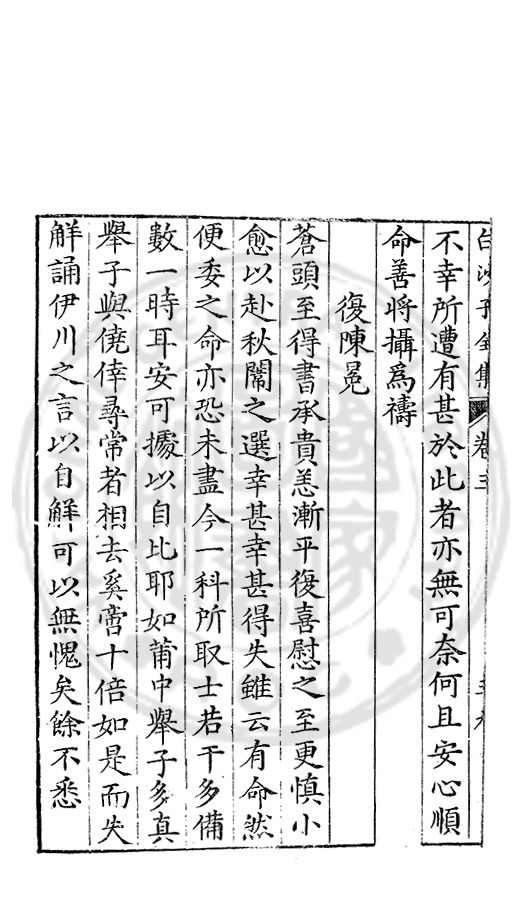 白沙子全集 卷三
不幸所遭有甚於此者亦無可柰何且安心順
命善将攝爲禱
復陳冕
蒼頭至得書承貴恙漸平復喜慰之至更慎小
愈以赴秋闈之選幸甚幸甚得失雖云有命然
便委之命亦恐未盡今一科所取士若干多備
數一時耳安可據以自比耶如莆中舉子多真
舉子與僥倖尋常者相去奚啻十倍如是而失
觧誦伊川之言以自觧可以無愧矣餘不悉